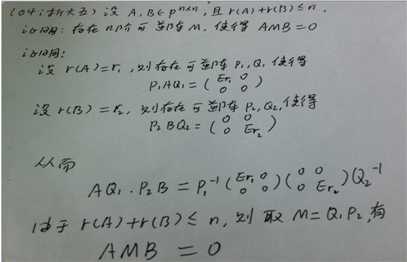 (04:浙大五) 设 A, B∈P^{n×n}, 且 r(A)+r(B)≤n.
证明: 存在 n阶可逆阵 M, 使得 AMB=0
证明:
设 r(A)=r₁, 则存在可逆阵 P₁, Q₁ 使得
P₁AQ₁=(Er₁ 0
0 0)
设 r(B)=r₂, 则存在可逆阵 P₂, Q₂, 使得
P₂BQ₂=(0 0
0 Er₂)
从而
AQ₁·P₂B=P₁⁻¹(Er₁ 0 (0 0
0 0) 0 Er₂)Q₂⁻¹
由于 r(A)+r(B)≤n, 则取 M=Q₁P₂, 有
AMB=0